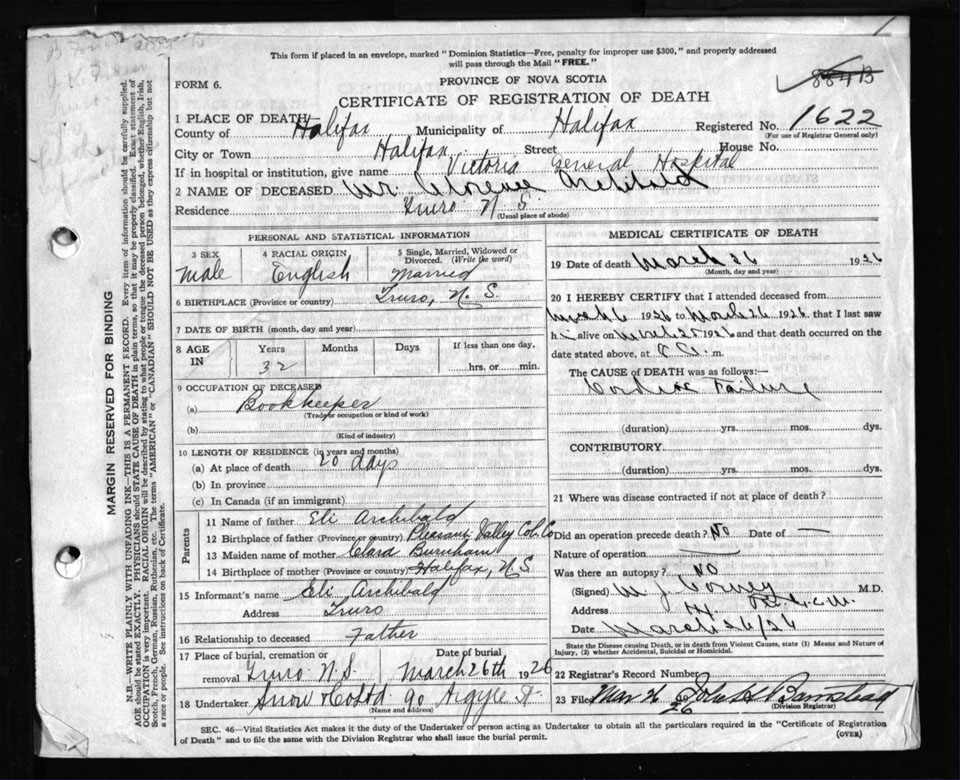 This form if placed in an envelope, marked "Dominion Statistics—Free, penalty for improper use $300," and properly addressed
will pass through the Mail "FREE."
FORM 6. PROVINCE OF NOVA SCOTIA 884B
CERTIFICATE OF REGISTRATION OF DEATH
1 PLACE OF DEATH
County of Halifax Municipality of Halifax Registered No. 1622
(For use of Registrar General only)
City or Town Halifax Street House No.
If in hospital or institution, give name Victoria General Hospital
2 NAME OF DECEASED Mr. Clarence Archibald
Residence Truro N.S.
(Usual place of abode)
PERSONAL AND STATISTICAL INFORMATION
3 SEX 4 RACIAL ORIGIN 5 Single, Married, Widowed or
Divorced. (Write the word)
Male English Married
6 BIRTHPLACE (Province or country) Truro, N.S.
7 DATE OF BIRTH (month, day and year)
8 AGE IN Years Months Days If less than one day,
32 hrs. or min.
9 OCCUPATION OF DECEASED
(a) Bookkeeper
(Trade or occupation or kind of work)
(b)
(Kind of industry)
10 LENGTH OF RESIDENCE (in years and months)
(a) At place of death 20 days
(b) In province
(c) In Canada (if an immigrant)
Parents
11 Name of father Eli Archibald
12 Birthplace of father (Province or country) Pleasant Valley Col. Co
13 Maiden name of mother Clara Burnham
14 Birthplace of mother (Province or country) Halifax, N.S
15 Informant's name Eli Archibald
Address Truro
16 Relationship to deceased Father
17 Place of burial, cremation or Date of burial
removal Truro N.S. March 26th 1926
18 Undertaker Snow Co Ltd 90 Argyle St.
(Name and address)
MEDICAL CERTIFICATE OF DEATH
19 Date of death March 26 1926
(Month, day and year)
20 I HEREBY CERTIFY that I attended deceased from
March 6 1926 to March 26 1926 that I last saw
h alive on March 25 1926 and that death occurred on the
date stated above, at m.
The CAUSE of DEATH was as follows:—
Cardiac Failure
(duration) yrs. mos. dys.
CONTRIBUTORY
(duration) yrs. mos. dys.
21 Where was disease contracted if not at place of death?
Did an operation precede death? No Date of —
Nature of operation —
Was there an autopsy? NO
(Signed) M.D.
Address
Date March 26/26
State the Disease causing Death, or in death from Violent Causes, state (1) Means and Nature of
Injury, (2) whether Accidental, Suicidal or Homicidal.
22 Registrar's Record Number
23 Filed Mar 26 26 John H Barnstead
(Division Registrar)
SEC. 46—Vital Statistics Act makes it the duty of the Undertaker or person acting as Undertaker to obtain all the particulars required in the "Certificate of Registration
of Death" and to file the same with the Division Registrar who shall issue the burial permit.
(OVER)
MARGIN RESERVED FOR BINDING
N.B.—WRITE PLAINLY WITH UNFADING INK—THIS IS A PERMANENT RECORD. Every item of information should be carefully supplied.
AGE should be stated EXACTLY. PHYSICIANS should STATE CAUSE OF DEATH in plain terms, so that it may be properly classified. Exact statement of
OCCUPATION is very important. RACIAL ORIGIN will be described by stating to what people or tongue the deceased person belonged, whether English, Irish,
Scotch, French, German, Russian, Ruthenian, etc. The terms "AMERICAN" or "CANADIAN" SHOULD NOT BE USED as they express citizenship but not
a race or people. See instructions on back of Certificate.